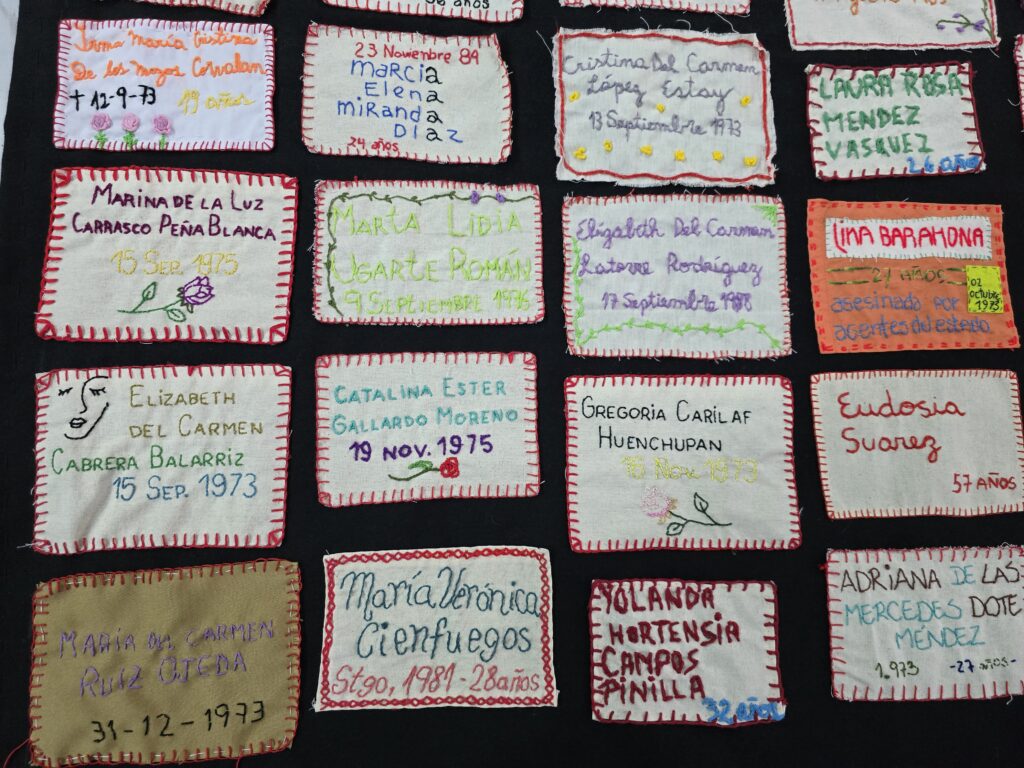 36 años
Irma María Cristina
De los Mozos Corvalan
+ 12-9-73 19 años
23 Noviembre 89
Marcia
Elena
Miranda
Diaz
24 años
Cristina Del Carmen
López Estay
13 Septiembre 1973
LAURA ROSA
MENDEZ
VASQUEZ
26 años
MARINA DE LA LUZ
CARRASCO PEÑA BLANCA
15 SEP. 1975
MARTA LIDIA
UGARTE ROMÁN
9 SEPTIEMBRE 1976
Elizabeth Del Carmen
Latorre Rodríguez
17 Septiembre 1988
LINA BARAHONA
21 AÑOS
02
octubre
1973
asesinada por
agentes del estado
ELIZABETH
DEL CARMEN
CABRERA BALARRIZ
15 SEP. 1973
CATALINA ESTER
GALLARDO MORENO
19 NOV. 1975
GREGORIA CARILAF
HUENCHUPAN
Nov. 1973
Eudosia
Suarez
57 AÑOS
MARÍA DEL CARMEN
RUIZ OJEDA
31-12-1973
María Verónica
Cienfuegos
Stgo, 1981 - 28 años
YOLANDA
HORTENSIA
CAMPOS
PINILLA
32 años
ADRIANA DE LAS
MERCEDES DOTE
MÉNDEZ
1.973 -27 años-